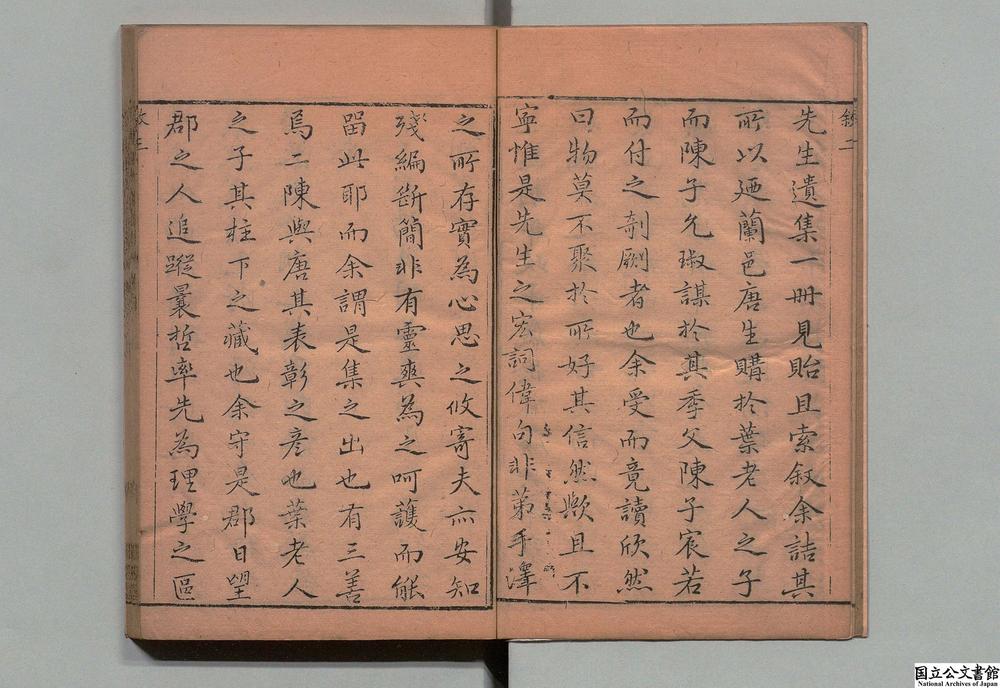 敘 二
先生遺集一冊見貽且索叙余詰其
所以廼蘭邑唐生購於葉老人之子
而陳子允琡謀於其季父陳子宸若
而付之剞劂者也余受而竟讀欣然
曰物莫不聚於所好其信然歟且不
寧惟是先生之宏詞偉句非第手澤
之所存實為心思之攸寄夫亦安知
殘編斷簡非有靈爽為之呵護而能
留此耶而余謂是集之出也有三善
焉二陳與唐其表彰之彦也葉老人
之子其柱下之藏也余守是郡日望
郡之人追蹤曩哲率先為理學之區
三
国立公文書館
National Archives of Japan